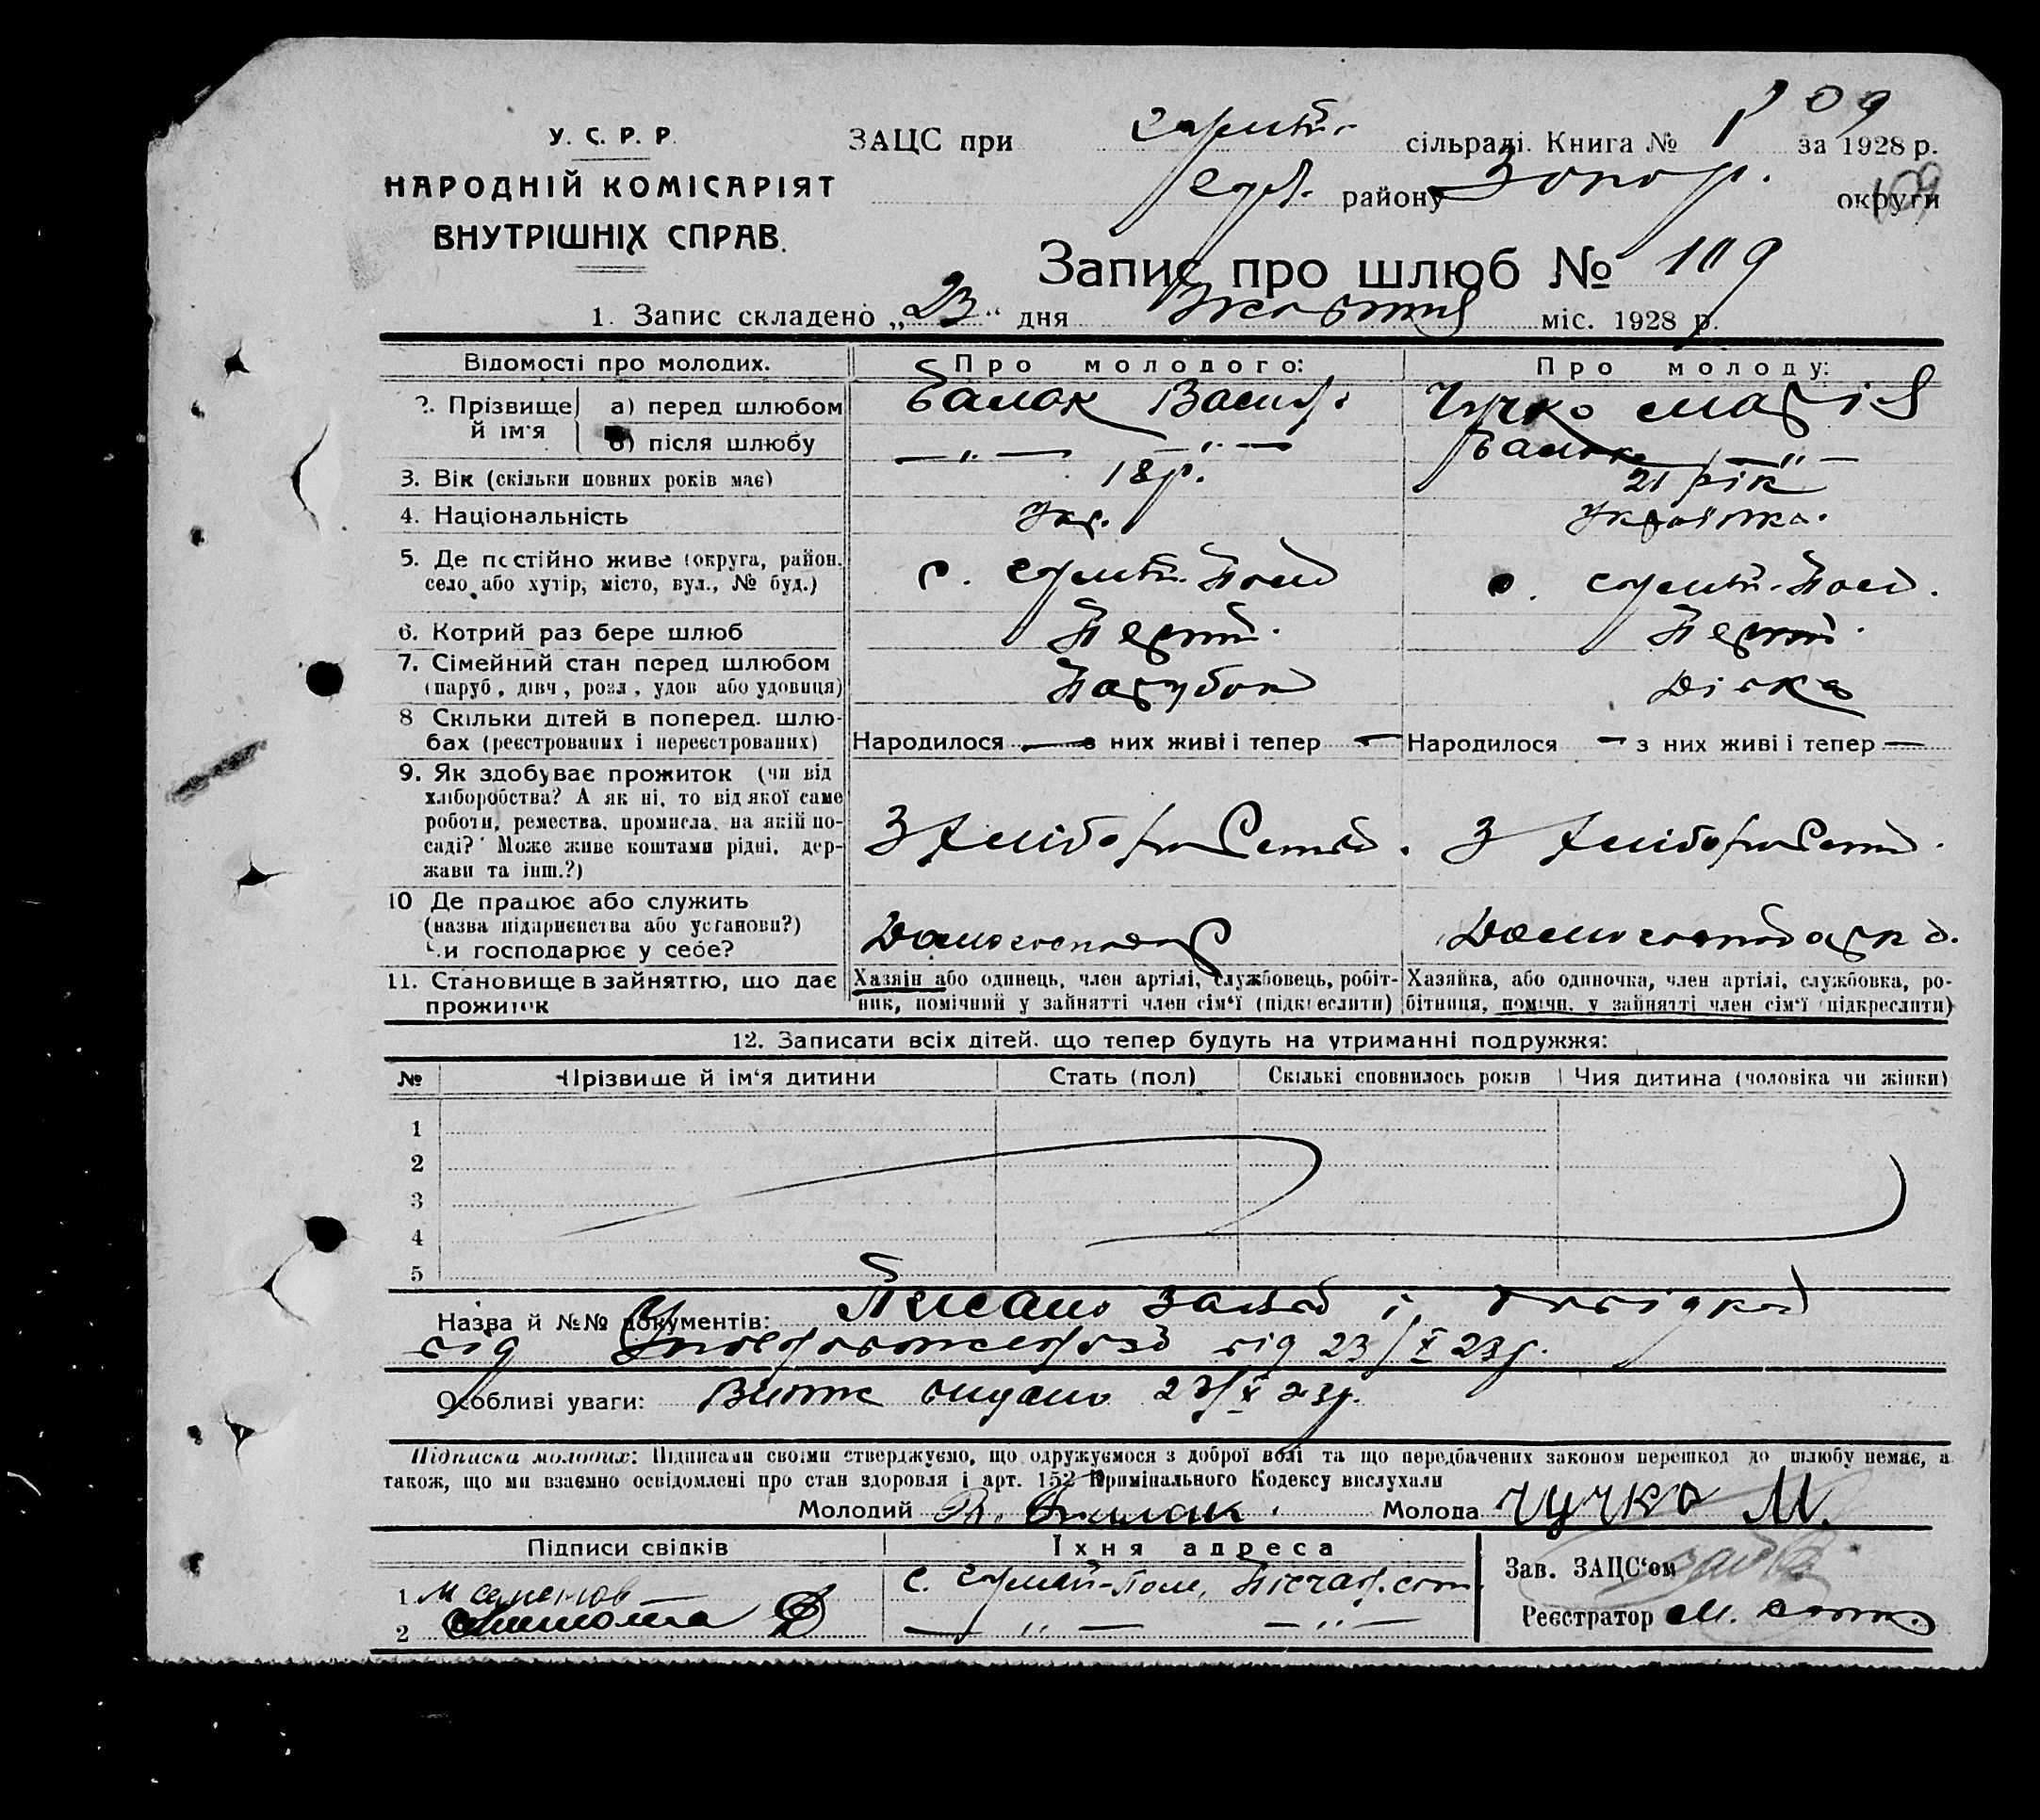 У. С. Р. Р.
НАРОДНІЙ КОМІСАРІЯТ
ВНУТРІШНІХ СПРАВ.
109
ЗАЦС при сільраді. Книга № за 1928 р.
району Запор. округи
109
Запис про шлюб № 109
1. Запис складено „23“ дня Жовтня міс. 1928 р.
Відомості про молодих. Про молодого: Про молоду:
2. Прізвище й ім'я а) перед шлюбом Балак Чучко Марія
б) після шлюбу — „ — — „ — — „ —
3. Вік (скільки повних років має) 18 р. 21 рік
4. Національність Укр. Українка.
5. Де постійно живе (округа, район, село або хутір, місто, вул., № буд.) с. с.
6. Котрий раз бере шлюб Перший. Перший.
7. Сімейний стан перед шлюбом (паруб., дівч., розл., удов. або удовиця) Парубок Дівка
8. Скільки дітей в поперед. шлюбах (реєстрованих і нереєстрованих) Народилося — з них живі і тепер — Народилося — з них живі і тепер —
9. Як здобуває прожиток (чи від
хліборобства? А як ні, то від якої саме
роботи, ремества, промисла, на якій по-
саді? Може живе коштами рідні, дер- З хліборобства. З хліборобства.
жави та інш.?)
10. Де працює або служить
(назва підприємства або установи?)
Чи господарює у себе? Домогосподар Домогосподарка.
11. Становище в зайняттю, що дає Хазяїн або одинець, член артілі, службовець, робіт- Хазяйка, або одиночка, член артілі, службовка, ро-
прожиток ник, помічний у зайнятті член сім'ї (підкреслити) бітниця, помічн. у зайнятті член сім'ї (підкреслити)
12. Записати всіх дітей, що тепер будуть на утриманні подружжя:
№ Прізвище й ім'я дитини Стать (пол) Скількі сповнилось років Чия дитина (чоловіка чи жінки)
1
2
3
4
5
Назва й №№ документів: і довідка
від від 23/X 28 р.
Особливі уваги: Витяг видано 23/X 28 р.
Підписка молодих: Підписами своїми стверджуємо, що одружуємося з доброї волі та що передбачених законом перешкод до шлюбу немає, а
також, що ми взаємно освідомлені про стан здоровля і арт. 152 Кримінального Кодексу вислухали
Молодий Молода Чучко М.
Підписи свідків Їхня адреса
Зав. ЗАЦС'ом
1 с.
2 — „ — — „ — Реєстратор М.